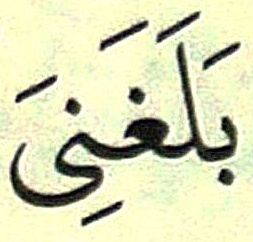 بَلَغَنِىَ